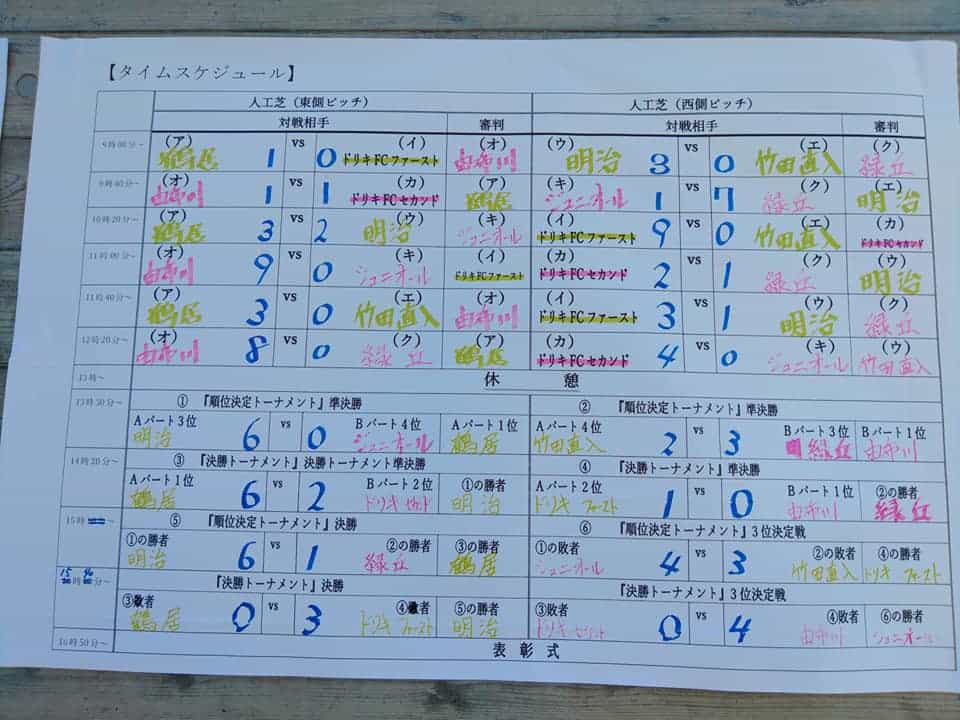 【タイムスケジュール】
人工芝（東側ピッチ） 人工芝（西側ピッチ）
対戦相手 審判 対戦相手 審判
9時00分~ (ア) 鶴居 1 vs 0 (イ) ドリキFCファースト (オ) 由布川 (ウ) 明治 3 vs 0 (エ) 竹田直入 (ク) 緑丘
9時40分~ (オ) 由布川 1 vs 1 (カ) ドリキFCセカンド (ア) 鶴居 (キ) ジュニオール 1 vs 7 (ク) 緑丘 (エ) 明治
10時20分~ (ア) 鶴居 3 vs 2 (ウ) 明治 (キ) ジュニオール (イ) ドリキFCファースト 9 vs 0 (エ) 竹田直入 (カ) ドリキFCセカンド
11時00分~ (オ) 由布川 9 vs 0 (キ) ジュニオール (イ) ドリキFCファースト (カ) ドリキFCセカンド 2 vs 1 (ク) 緑丘 (ウ) 明治
11時40分~ (ア) 鶴居 3 vs 0 (エ) 竹田直入 (オ) 由布川 (イ) ドリキFCファースト 3 vs 1 (ウ) 明治 (ク) 緑丘
12時20分~ (オ) 由布川 8 vs 0 (ク) 緑丘 (ア) 鶴居 (カ) ドリキFCセカンド 4 vs 0 (キ) ジュニオール (ウ) 竹田直入
13時~ 休憩
13時30分~ ① 『順位決定トーナメント』準決勝 ② 『順位決定トーナメント』準決勝
Aパート3位 明治 6 vs 0 Bパート4位 ジュニオール Aパート1位 鶴居 Aパート4位 竹田直入 2 vs 3 Bパート3位 緑丘 Bパート1位 由布川
14時20分~ ③ 『決勝トーナメント』決勝トーナメント準決勝 ④ 『決勝トーナメント』準決勝
Aパート1位 鶴居 6 vs 2 Bパート2位 ドリキ セカンド ①の勝者 明治 Aパート2位 ドリキ ファースト 1 vs 0 Bパート1位 由布川 ②の勝者 緑丘
15時~ ⑤ 『順位決定トーナメント』決勝 ⑥ 『順位決定トーナメント』3位決定戦
①の勝者 明治 6 vs 1 ②の勝者 緑丘 ③の勝者 鶴居 ①の敗者 ジュニオール 4 vs 3 ②の敗者 竹田直入 ④の勝者 ドリキ ファースト
15時40分~ 『決勝トーナメント』決勝 『決勝トーナメント』3位決定戦
鶴居 0 vs 3 ドリキ ファースト ⑤の勝者 明治 ③敗者 ドリキ セカンド 0 vs 4 ④敗者 由布川 ⑥の勝者 ジュニオール
16時50分~ 表彰式